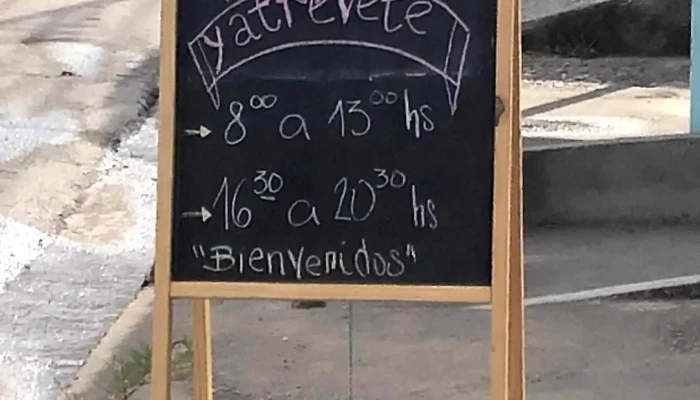 yatrevete
8⁰⁰ a 13⁰⁰ hs
16³⁰ a 20³⁰ hs
"Bienvenidos"